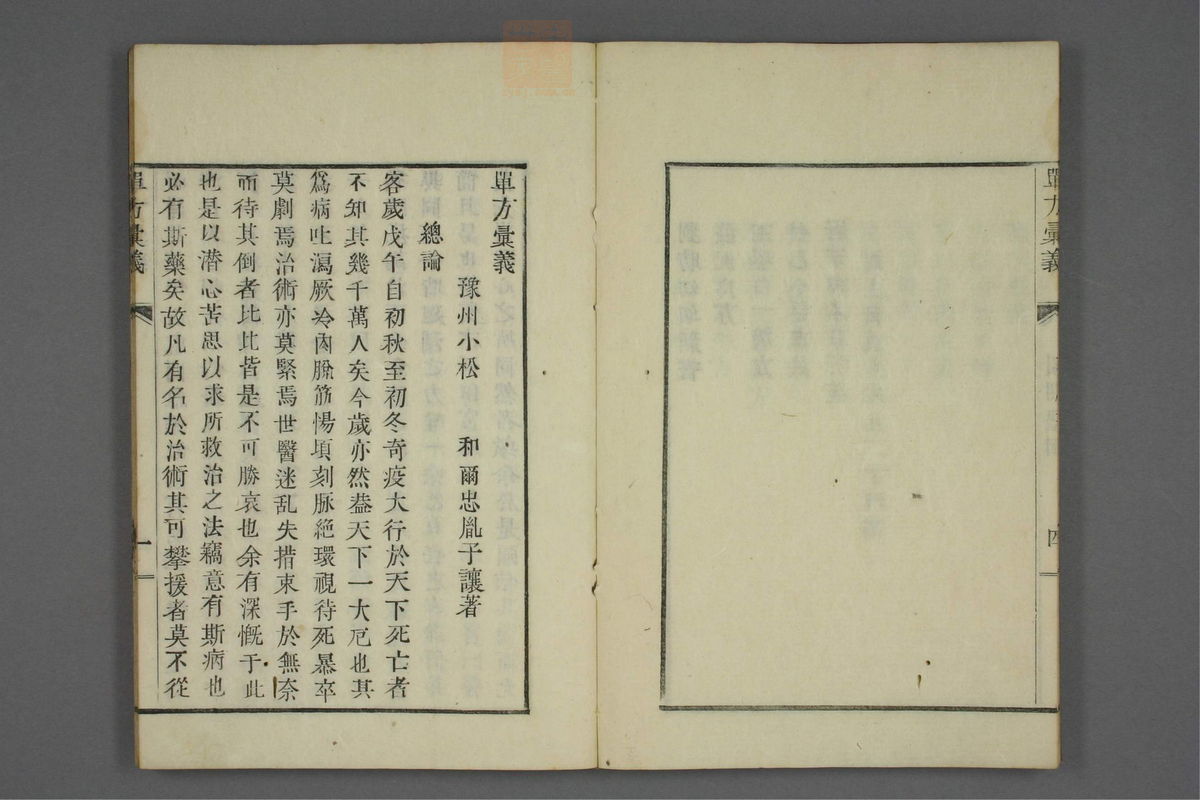 單方彙義
四
單方彙義
豫州小松 和爾忠胤子讓著
總論
客歲戊午自初秋至初冬奇疫大行於天下死亡者
不知其幾千萬人矣今歲亦然蓋天下一大厄也其
爲病吐瀉厥冷肉脫筋惕頃刻脉絶環視待死暴卒
莫劇焉治術亦莫緊焉世醫迷乱失措束手於無奈
而待其倒者比比皆是不可勝哀也余有深慨于此
也是以潜心苦思以求所救治之法竊意有斯病也
必有斯藥矣故凡有名於治術其可攀援者莫不從
單方彙義
一